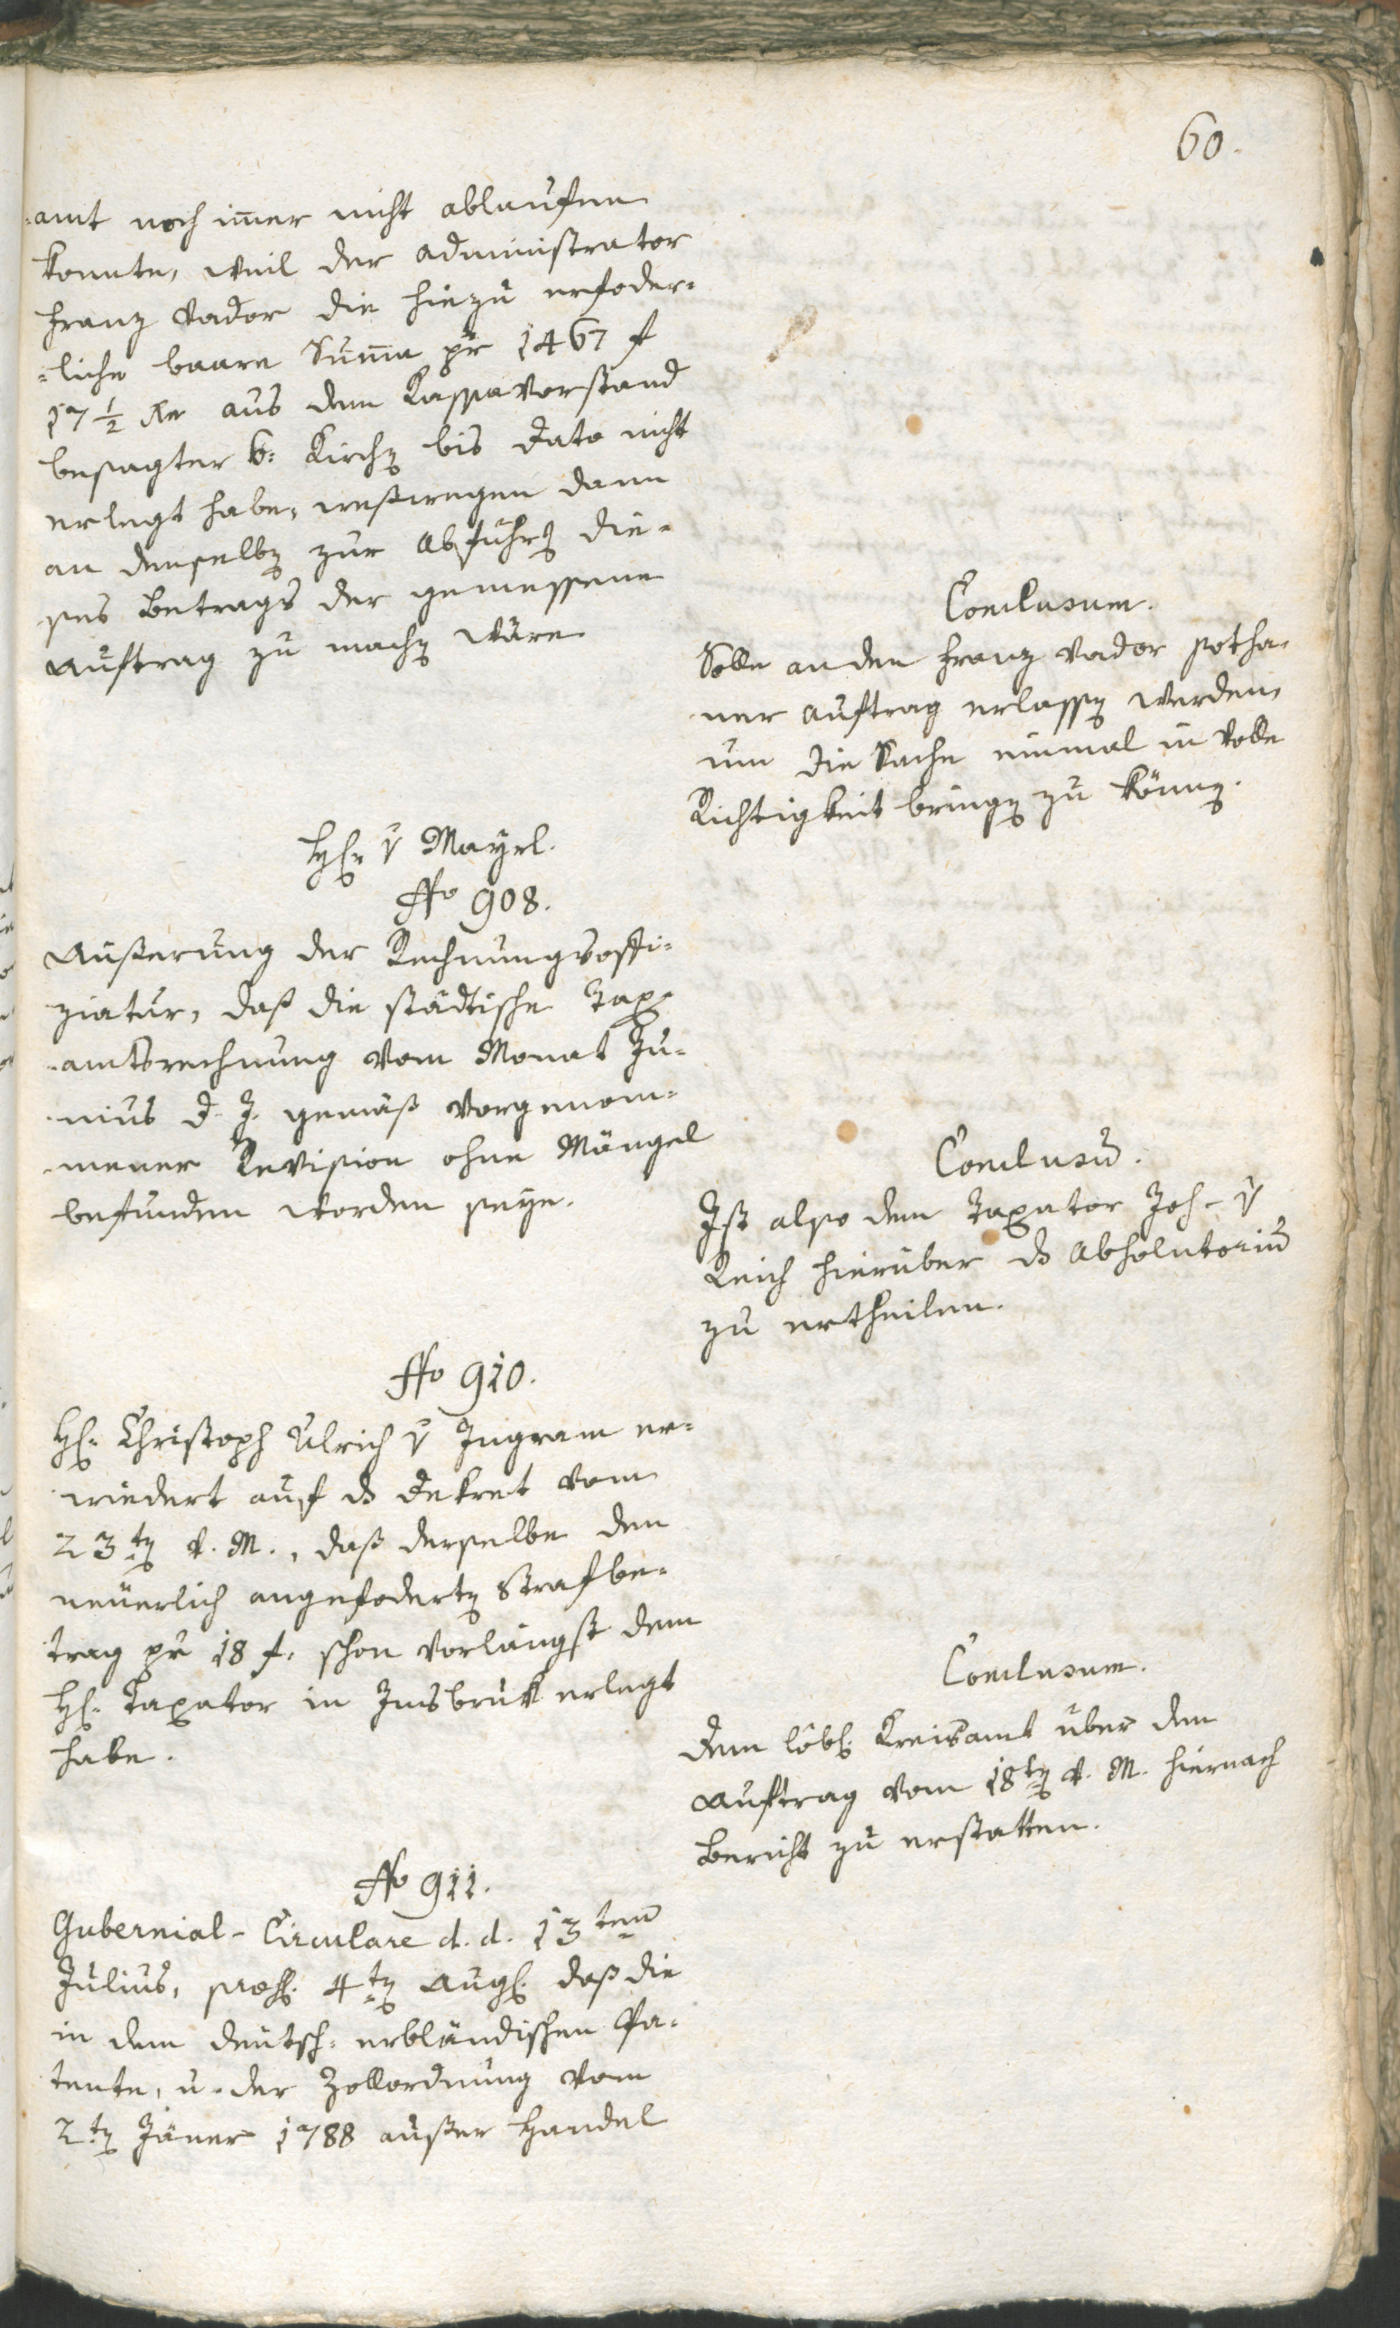 60.
-amt noch im̅er nicht ablaufen
konnte, weil der Administrator
Franz Vador die hiezu erfoder-
-liche baare Sum̅a pr 1467 f
17 1/2 kr aus dem Kassavorstand
besagter b: Kirchen bis dato nicht
erlegt habe, weßwegen dann
an denselben zur Abführg die-
ses Betrags der gemessene
Auftrag zu machen wäre.
Conclusum.
Solle an den Franz Vador sotha-
ner Auftrag erlassen werden,
um die Sache einmal in volle
Richtigkeit bringen zu können.
Hr v Mayrl.
No 908.
Äußerung der Rechnungsoffi-
ziatur, daß die städtische Tax-
-amtsrechnung vom Monat Ju-
-nius d. J. gemäß vorgenom-
-mener Revision ohne Mängel
befunden worden seye.
Conclusum̅.
Ist also dem Taxator Joh. v
Reich hierüber ds Absolutorium̅
zu ertheilen.
No 910.
Hr Christoph Ulrich v Ingram er-
wiedert auf ds Dekret vom
23ten v. M., daß derselbe den
neüerlich angefoderten Strafbe-
trag pr 18 f. schon vorlängst dem
Hr Taxator in Insbruk erlegt
habe.
Conclusum.
Dem löbl. Kreisamt über den
Auftrag vom 18ten v. M. hiernach
Bericht zu erstatten.
No 911.
Gubernial-Circulare d. d. 13ten
Julius, præs. 4ten Aug. daß die
in dem deütsch-erbländischen Pa-
tente, u. der Zollordnung vom
2ten Jäner 1788 außer Handel